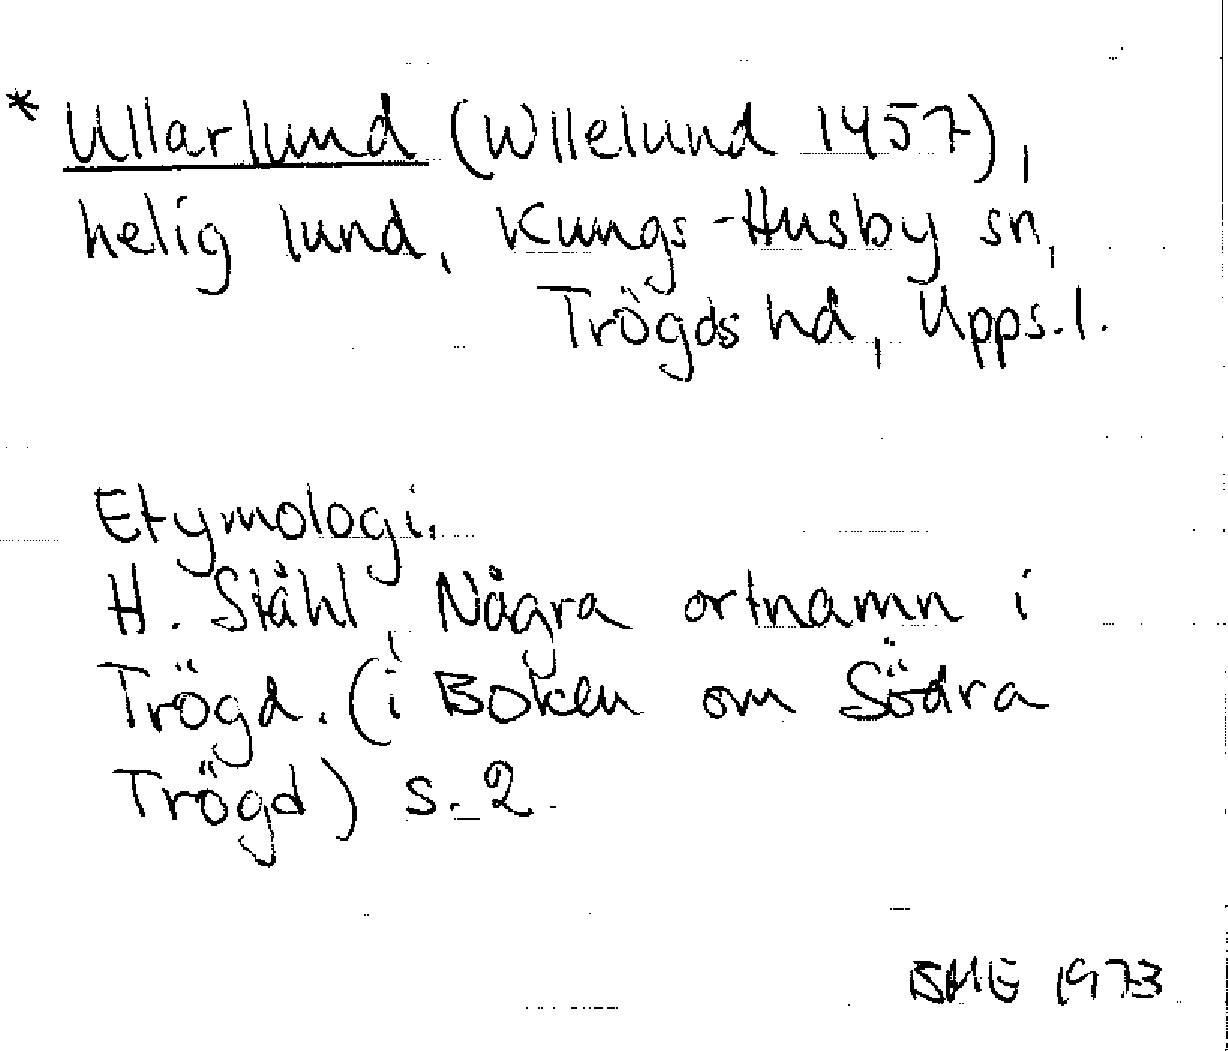 * Ullarlund (Wllelund 1457),
helig lund, Kungs-Husby sn,
Trögds hd, Upps.l.
Etymologi.
H. Ståhl, Några ortnamn i
Trögd. (i Boken om Södra
Trögd) s. 2.
BHE 1973